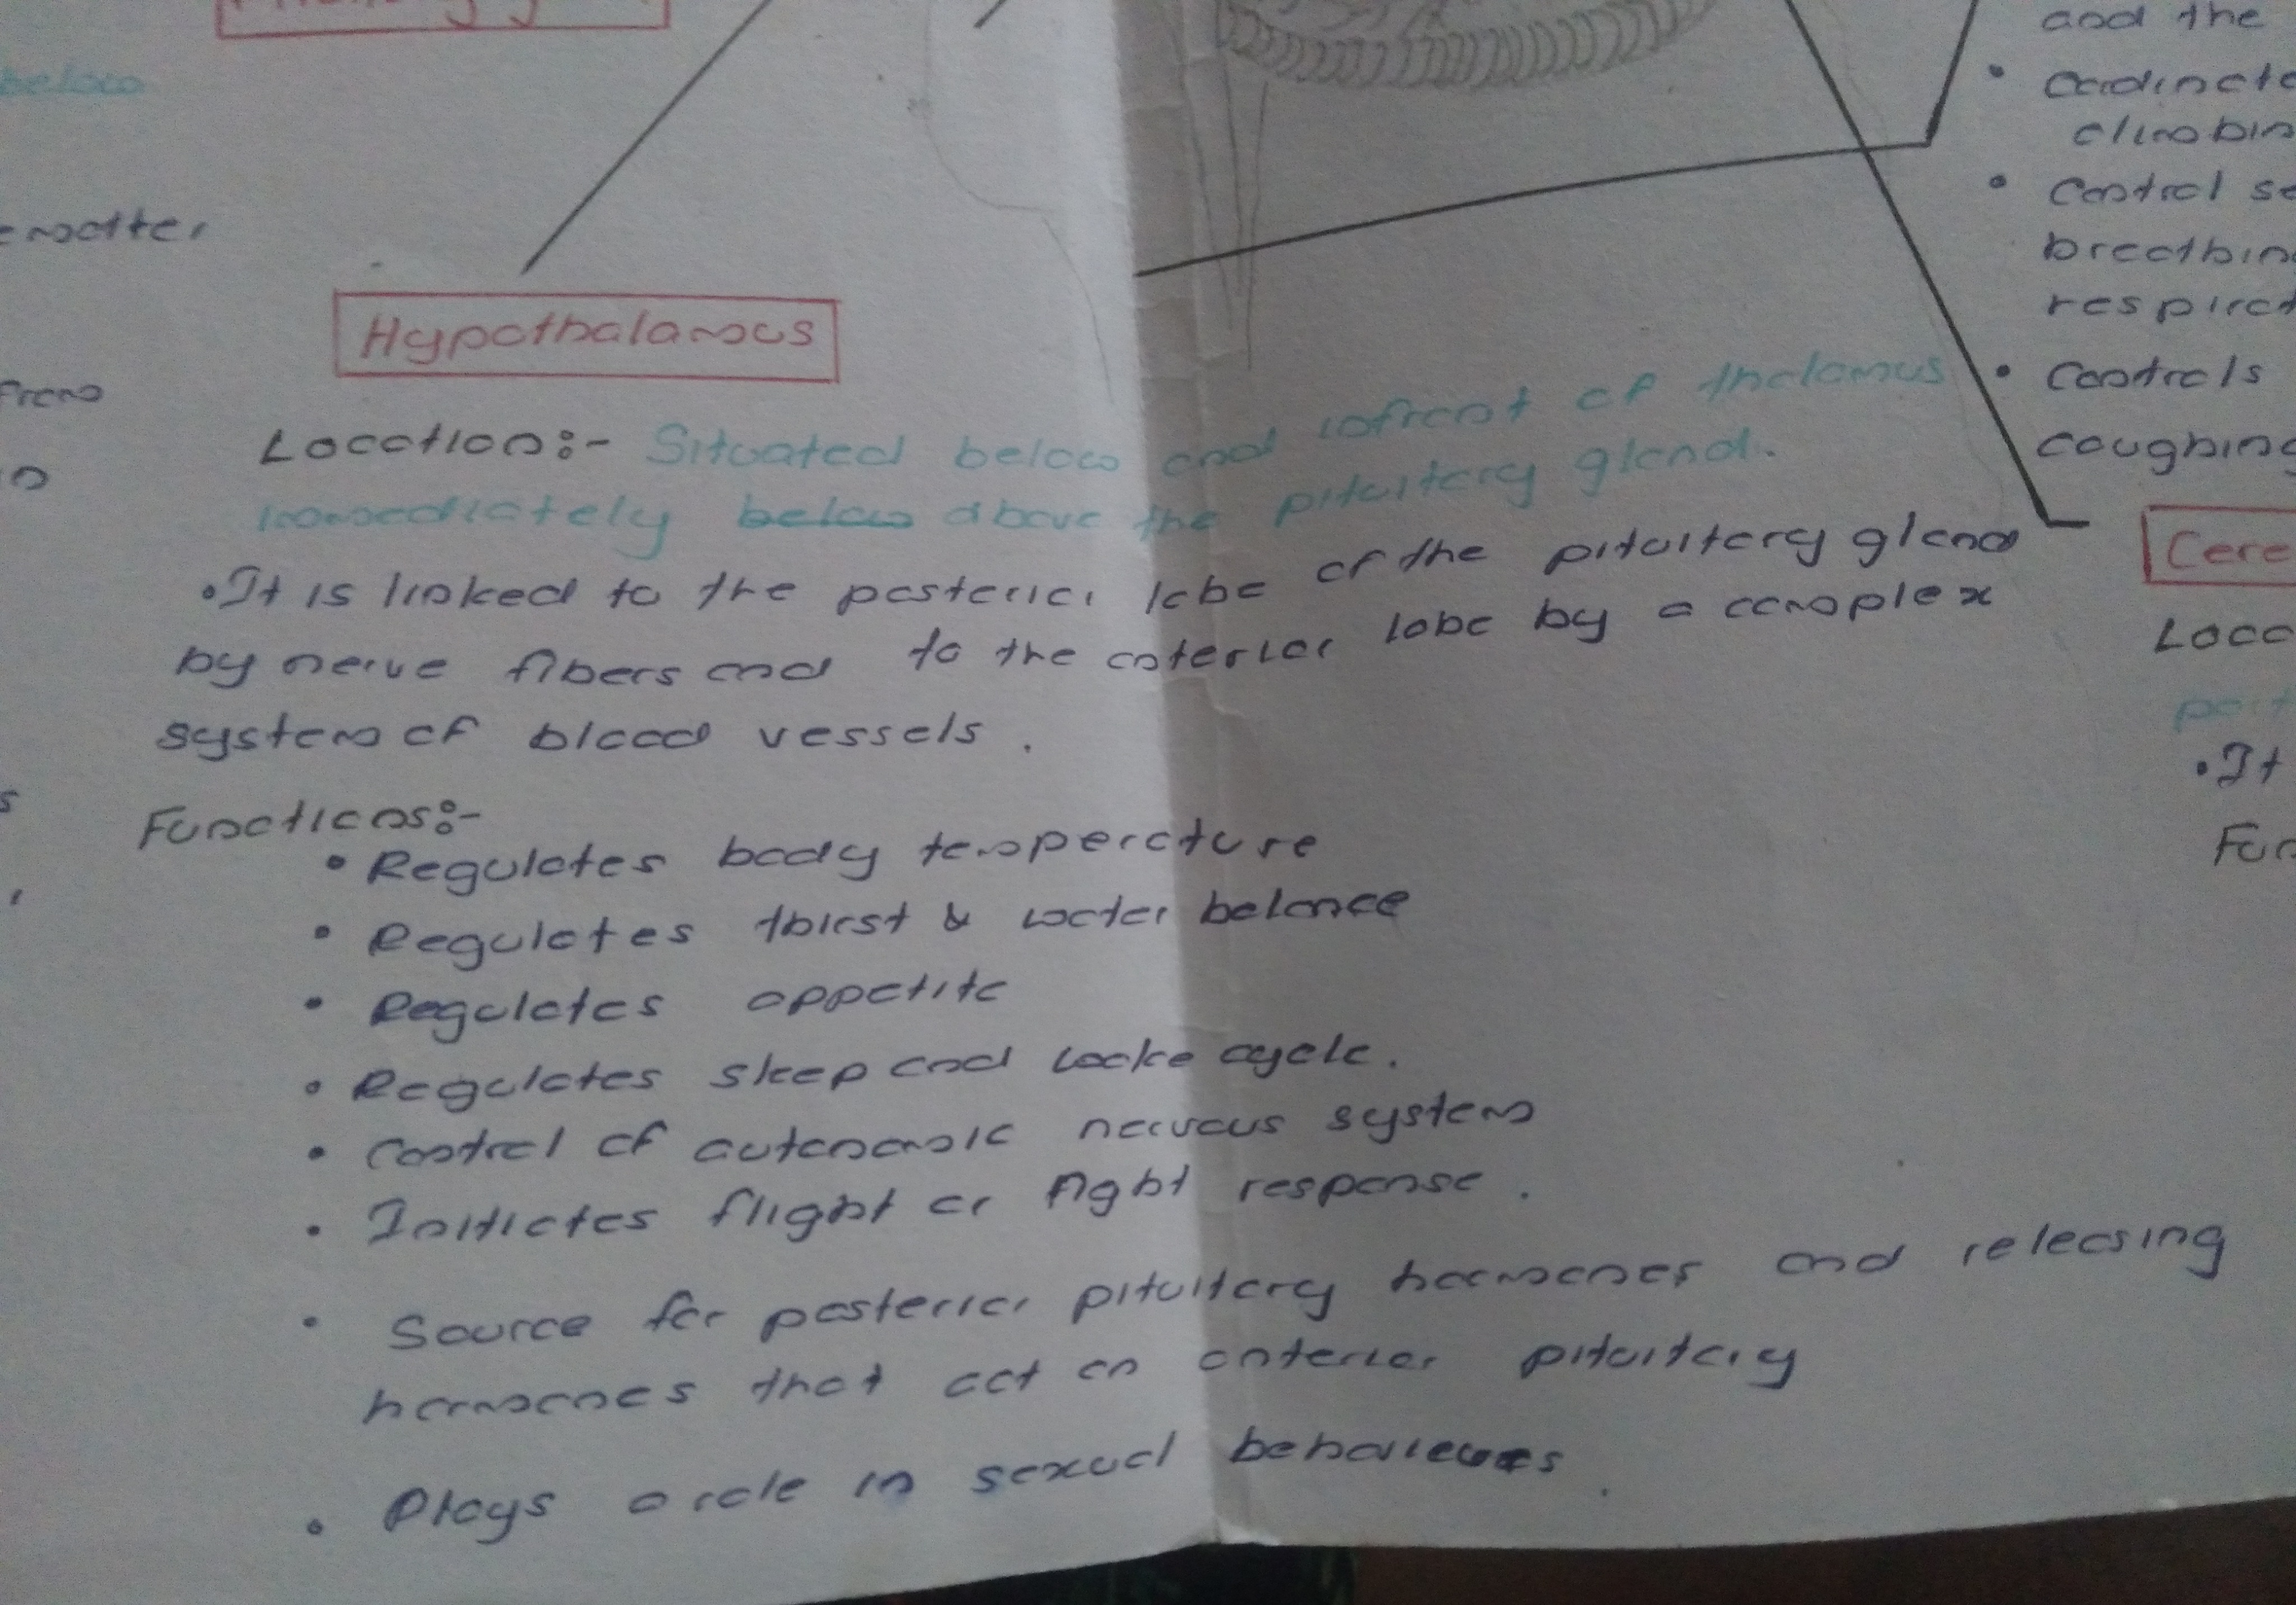 below
Hypothalamus
Location:- Situated below and infront of thalamus
immediately below above the pituitary gland.
•It is linked to the posterior lobe of the pituitary gland
by nerve fibers and to the anterior lobe by a complex
system of blood vessels.
Functions:-
• Regulates body temperature
• Regulates thirst & water balance
• Regulates appetite
• Regulates sleep and wake cycle.
• Control of autonomic nervous system
• Initiates flight or fight response.
• Source for posterior pituitary hormones and releasing
hormones that act on anterior pituitary
• Plays a role in sexual behaviours.
and the
•
• Control
• Controls
coughing
• It